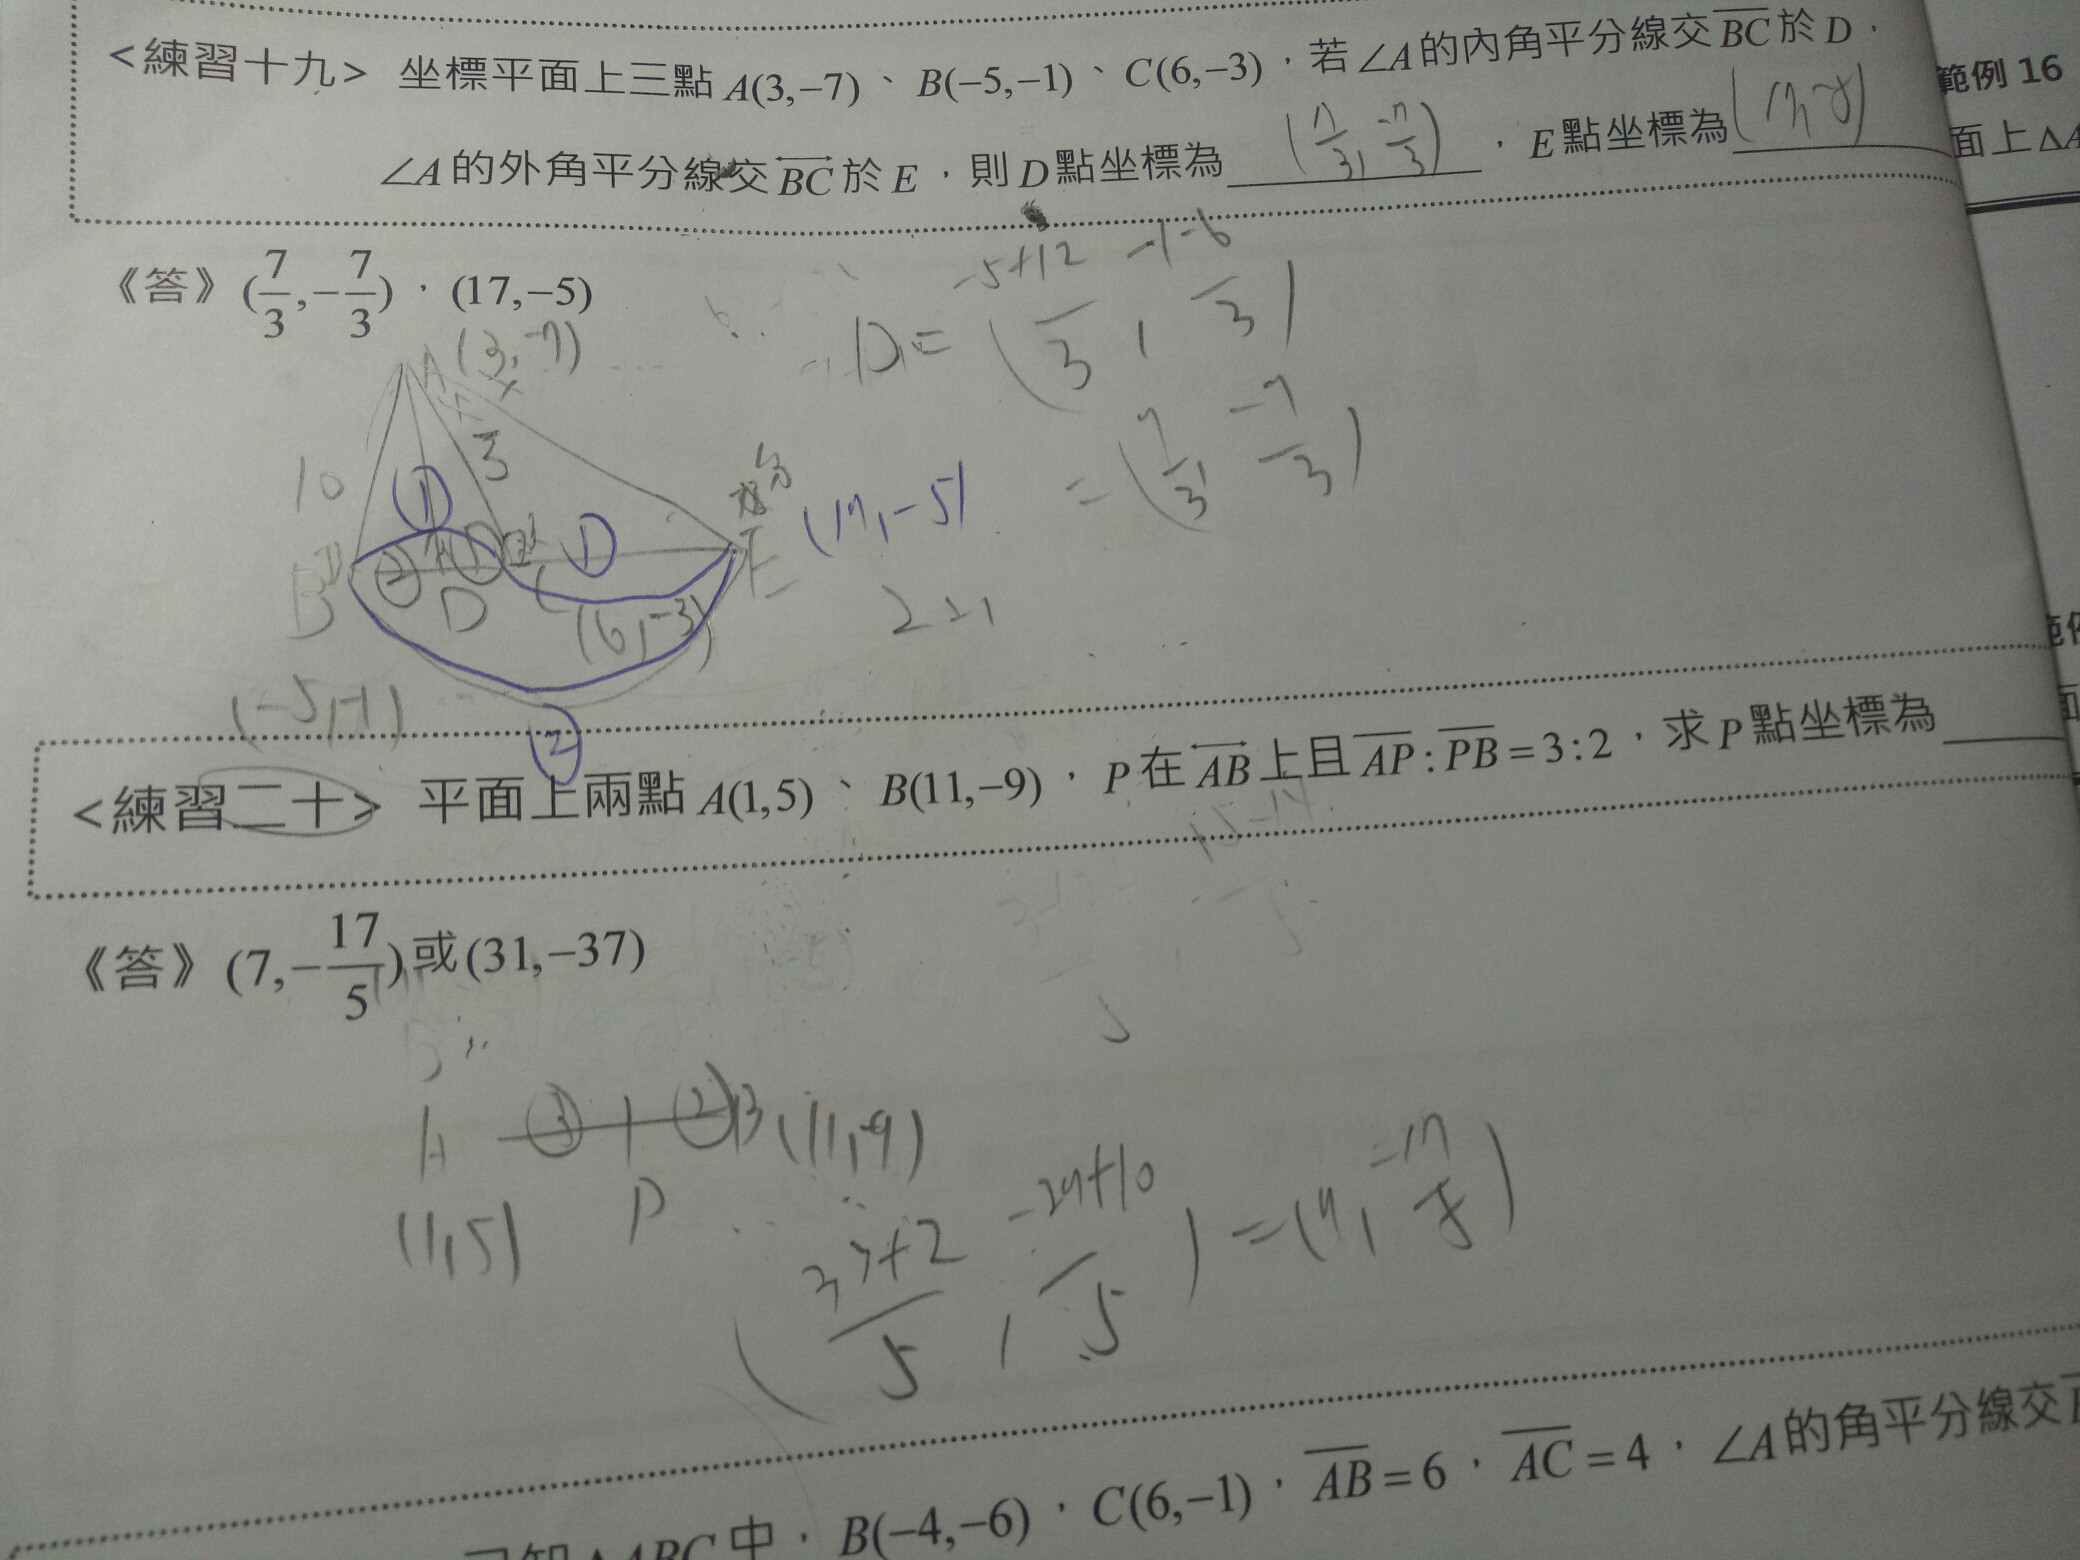 <練習十九> 坐標平面上三點 A(3,−7)、B(−5,−1)、C(6,−3),若∠A的內角平分線交BC於D,
∠A的外角平分線交BC於E,則D點坐標為 (7/3, -7/3) ,E點坐標為 (17,-5)
範例 16
面上△A
《答》(7/3,−7/3),(17,−5)
-5+12 -1-6
D=( 3 , 3 )
A(3,-7)
=(7/3, -7/3)
10
5
① 
B ② ① ① E (17,-5)
D C
(6,-3)
2:1
(-5,-1)
②
<練習二十> 平面上兩點 A(1,5)、B(11,−9),P在AB上且AP:PB=3:2,求P點坐標為
《答》(7,−17/5)或(31,−37)
A ③ ② B(11,-9)
(1,5) P
(33+2/5, -27+10/5)=(7, -17/5)
已知△ABC中,B(−4,−6),C(6,−1),AB=6,AC=4,∠A的角平分線交